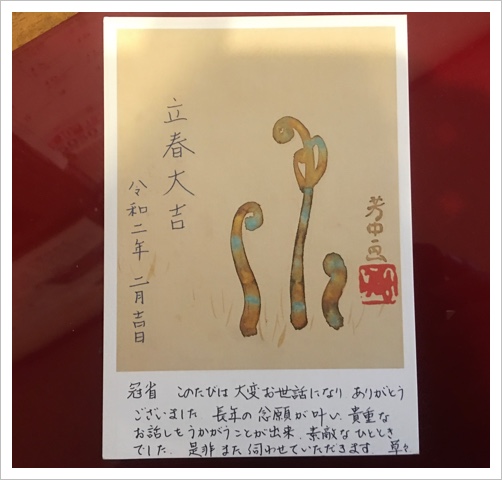 立春大吉
令和二年 二月吉日
芳中画
冠省 このたびは大変お世話になり ありがとう
ございました 長年の念願が叶い、貴重な
お話しもうかがうことが出来、素敵なひととき
でした、是非また伺わせていただきます 草々